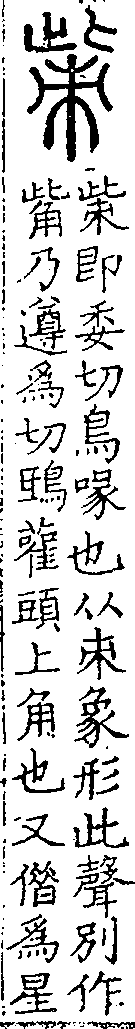 㭰
㭰即委切鳥喙也从朿象形此聲別作
觜乃遵爲切鴟雚頭上角也又僭爲星